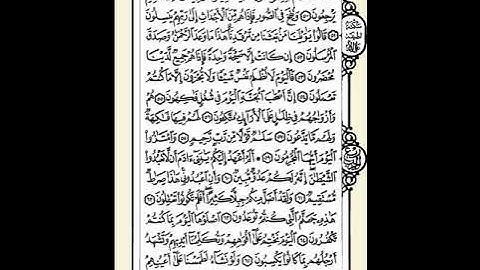 يَرْجِعُونَ ٥٠ وَنُفِخَ فِي ٱلصُّورِ فَإِذَا هُم مِّنَ ٱلْأَجْدَاثِ إِلَىٰ رَبِّهِمْ يَنسِلُونَ
٥١ قَالُوا۟ يَٰوَيْلَنَا مَنۢ بَعَثَنَا مِن مَّرْقَدِنَا ۜ هَٰذَا مَا وَعَدَ ٱلرَّحْمَٰنُ وَصَدَقَ
ٱلْمُرْسَلُونَ ٥٢ إِن كَانَتْ إِلَّا صَيْحَةً وَٰحِدَةً فَإِذَا هُمْ جَمِيعٌ لَّدَيْنَا
مُحْضَرُونَ ٥٣ فَٱلْيَوْمَ لَا تُظْلَمُ نَفْسٌ شَيْـًٔا وَلَا تُجْزَوْنَ إِلَّا مَا كُنتُمْ
تَعْمَلُونَ ٥٤ إِنَّ أَصْحَٰبَ ٱلْجَنَّةِ ٱلْيَوْمَ فِي شُغُلٍ فَٰكِهُونَ ٥٥ هُمْ
وَأَزْوَٰجُهُمْ فِي ظِلَٰلٍ عَلَى ٱلْأَرَآئِكِ مُتَّكِـُٔونَ ٥٦ لَهُمْ فِيهَا فَٰكِهَةٌ
وَلَهُم مَّا يَدَّعُونَ ٥٧ سَلَٰمٌ قَوْلًا مِّن رَّبٍّ رَّحِيمٍ ٥٨ وَٱمْتَٰزُوا۟
ٱلْيَوْمَ أَيُّهَا ٱلْمُجْرِمُونَ ٥٩ أَلَمْ أَعْهَدْ إِلَيْكُمْ يَٰبَنِيٓ ءَادَمَ أَن لَّا تَعْبُدُوا۟
ٱلشَّيْطَٰنَ ۖ إِنَّهُۥ لَكُمْ عَدُوٌّ مُّبِينٌ ٦٠ وَأَنِ ٱعْبُدُونِي ۚ هَٰذَا صِرَٰطٌ
مُّسْتَقِيمٌ ٦١ وَلَقَدْ أَضَلَّ مِنكُمْ جِبِلًّا كَثِيرًا ۖ أَفَلَمْ تَكُونُوا۟ تَعْقِلُونَ ٦٢
هَٰذِهِۦ جَهَنَّمُ ٱلَّتِي كُنتُمْ تُوعَدُونَ ٦٣ ٱصْلَوْهَا ٱلْيَوْمَ بِمَا كُنتُمْ
تَكْفُرُونَ ٦٤ ٱلْيَوْمَ نَخْتِمُ عَلَىٰٓ أَفْوَٰهِهِمْ وَتُكَلِّمُنَآ أَيْدِيهِمْ وَتَشْهَدُ
أَرْجُلُهُم بِمَا كَانُوا۟ يَكْسِبُونَ ٦٥ وَلَوْ نَشَآءُ لَطَمَسْنَا عَلَىٰٓ أَعْيُنِهِمْ